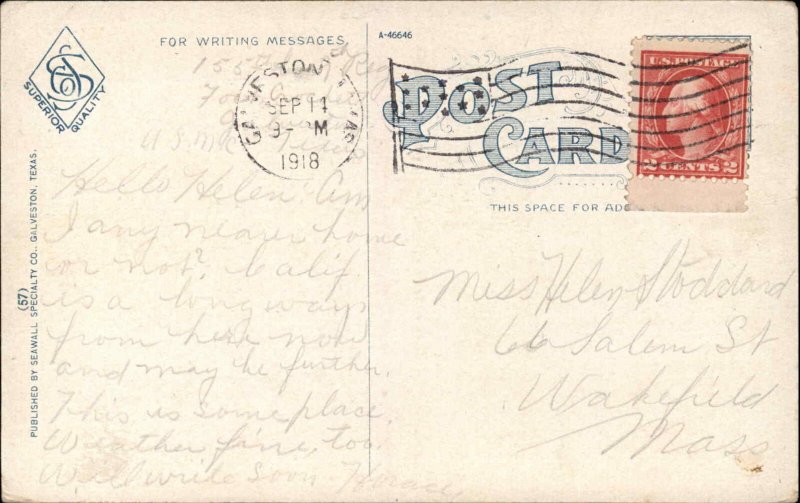 SUPERIOR QUALITY
FOR WRITING MESSAGES
A-46646
POST CARD
GALVESTON TEXAS
SEP 14
9- M
1918
U.S. POSTAGE
2 CENTS 2
THIS SPACE FOR ADD
(57)
PUBLISHED BY SEAWALL SPECIALTY CO., GALVESTON, TEXAS.
155
U.S.M.C. Texas
Hello Helen: Am
I any nearer home
or not? Calif.
is a long ways
from here now
and may be further.
This is some place.
Weather fine, too.
Will write soon Horace
Miss Helen Stoddard
66 Salem St
Wakefield
Mass